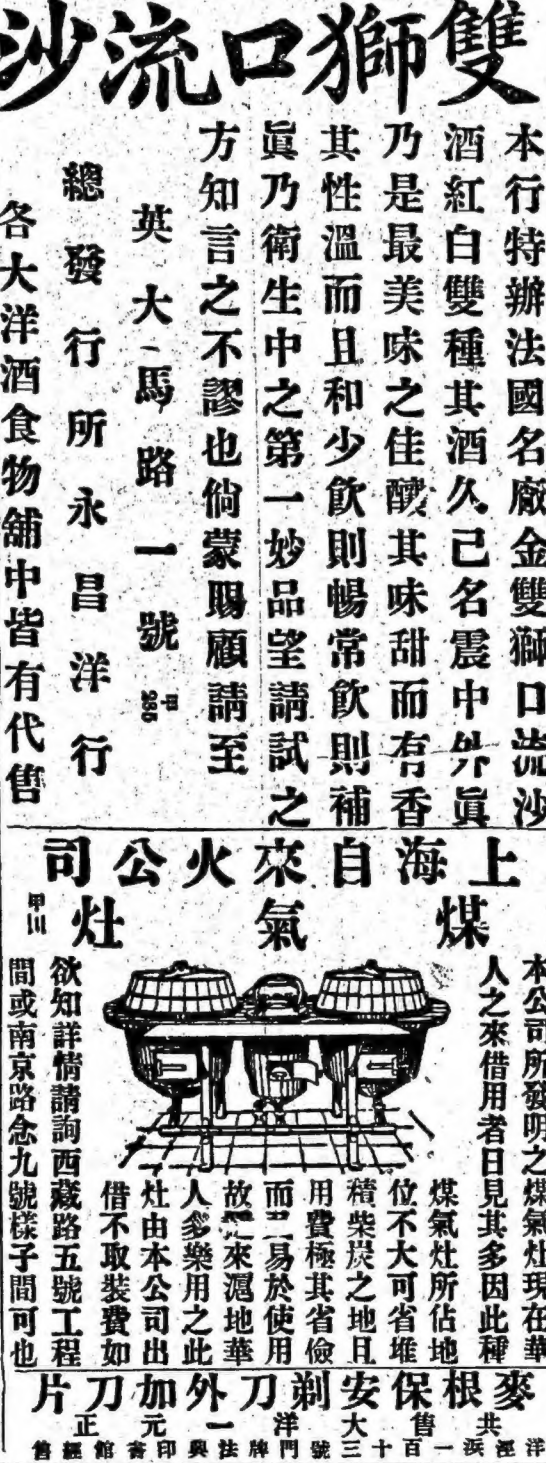 雙獅口流沙
本行特辦法國名廠金雙獅口流沙
酒紅白雙種其酒久已名震中外眞
乃是最美味之佳釀其味甜而有香
其性溫而且和少飲則暢常飲則補
眞乃衛生中之第一妙品望請試之
方知言之不謬也倘蒙賜顧請至
英大馬路一號
甲235
總發行所永昌洋行
各大洋酒食物舖中皆有代售
上海自來火公司
煤氣灶
本公司所發明之煤氣灶現在華
人之來借用者日見其多因此種
煤氣灶所佔地
位不大可省堆
積柴炭之地且
用費極其省儉
而易於使用
故來滬地華
人多樂用之此
灶由本公司出
借不取裝費如
欲知詳情請詢西藏路五號工程
間或南京路念九號樣子間可也
麥根保安剃刀外加刀片
共售大洋一元正
洋涇浜一百十三號門牌法興印書館經售